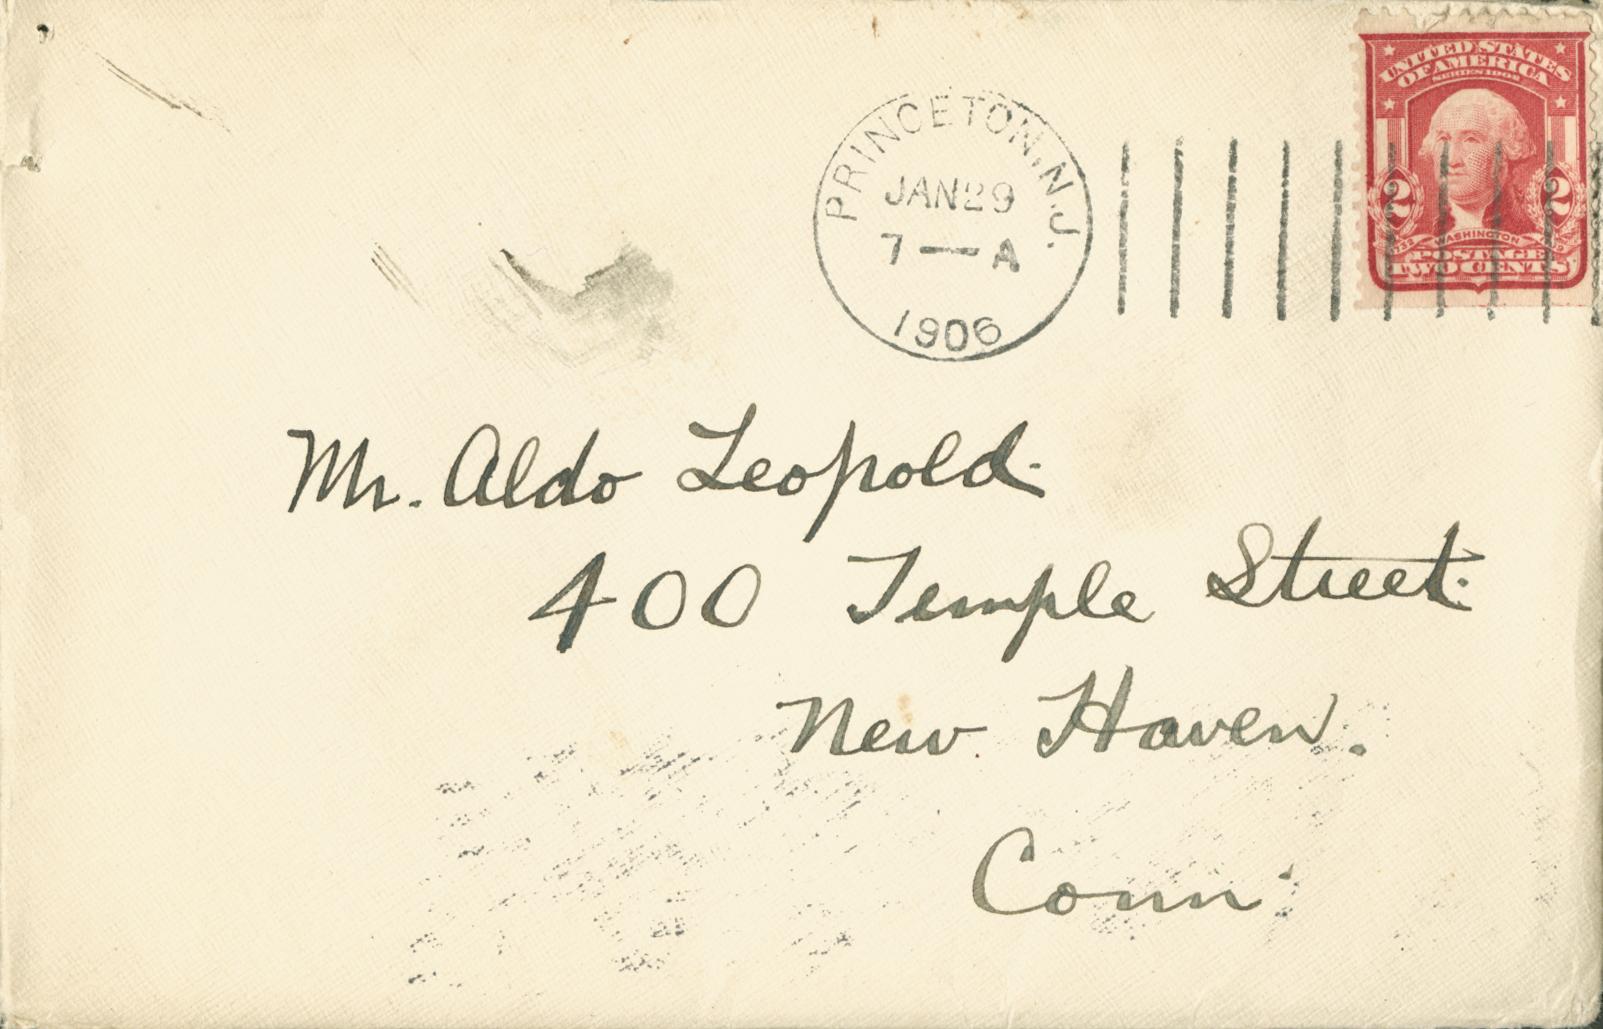 UNITED STATES
OF AMERICA
SERIES 1902
PRINCETON, N.J.
JAN 29
7 — A
1906
2 2
1732 WASHINGTON 1799
POSTAGE
TWO CENTS
Mr. Aldo Leopold.
400 Temple Street.
New Haven.
Conn.